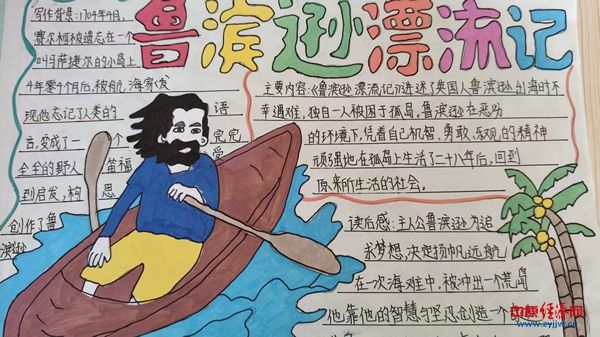 鲁滨逊漂流记
写作背景:1704年4月,
赛尔柯被遗忘在一个
叫马萨捷尔的小岛上
4年零4个月后,被航海家发
现他忘记了人类的 语
言,变成了一 个 完完
全全的野人 笛福 受
到启发,构 思
创作了鲁
滨逊
主要内容:《鲁滨逊漂流记》讲述了英国人鲁滨逊出海时不
幸遇难,独自一人被困于孤岛。鲁滨逊在恶劣
的环境下,凭着自己机智、勇敢、乐观的精神
顽强地在孤岛上生活了二十八年后,回到
原来所生活的社会。
读后感:主人公鲁滨逊为追
求梦想,决定扬帆远航
在一次海难中,被冲出一个荒岛
他靠他的智慧与坚忍创造一个
中原经济网
www.zyjjw.cn